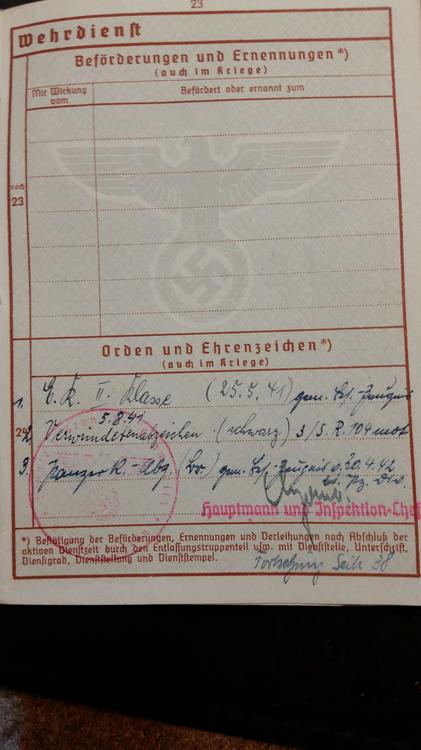 23
Wehrdienst
Beförderungen und Ernennungen*)
(auch im Kriege)
Mit Wirkung vom
Befördert oder ernannt zum
noch
23
Orden und Ehrenzeichen*)
(auch im Kriege)
1. E.K. II. Klasse (25.5.41) gem. Bes. Zeugnis
5.8.41
24
2. Verwundetenabzeichen (schwarz) 3/S.R. 104 mot
3. Panzer K. Abz. (Br.) gem. Bes. Zeugnis v. 20.4.42
Pz. Div.
Hauptmann und Inspektion-Chef
*) Bestätigung der Beförderungen, Ernennungen und Verleihungen nach Abschluß der
aktiven Dienstzeit durch den Entlassungstruppenteil usw. mit Dienststelle, Unterschrift,
Dienstgrad, Dienststellung und Dienststempel.
Fortsetzung Seite 38